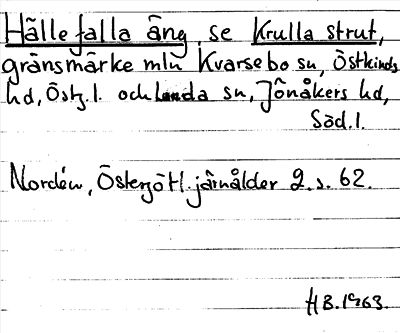 Hälle falla äng, se Krulla strut,
gränsmärke mln Kvarsebo sn, Östkinds
hd, Östg. l. och Lunda sn, Jönåkers hd,
Söd. l.
Nordén, Östergötl. järnålder 2. s. 62.
HB. 1963.